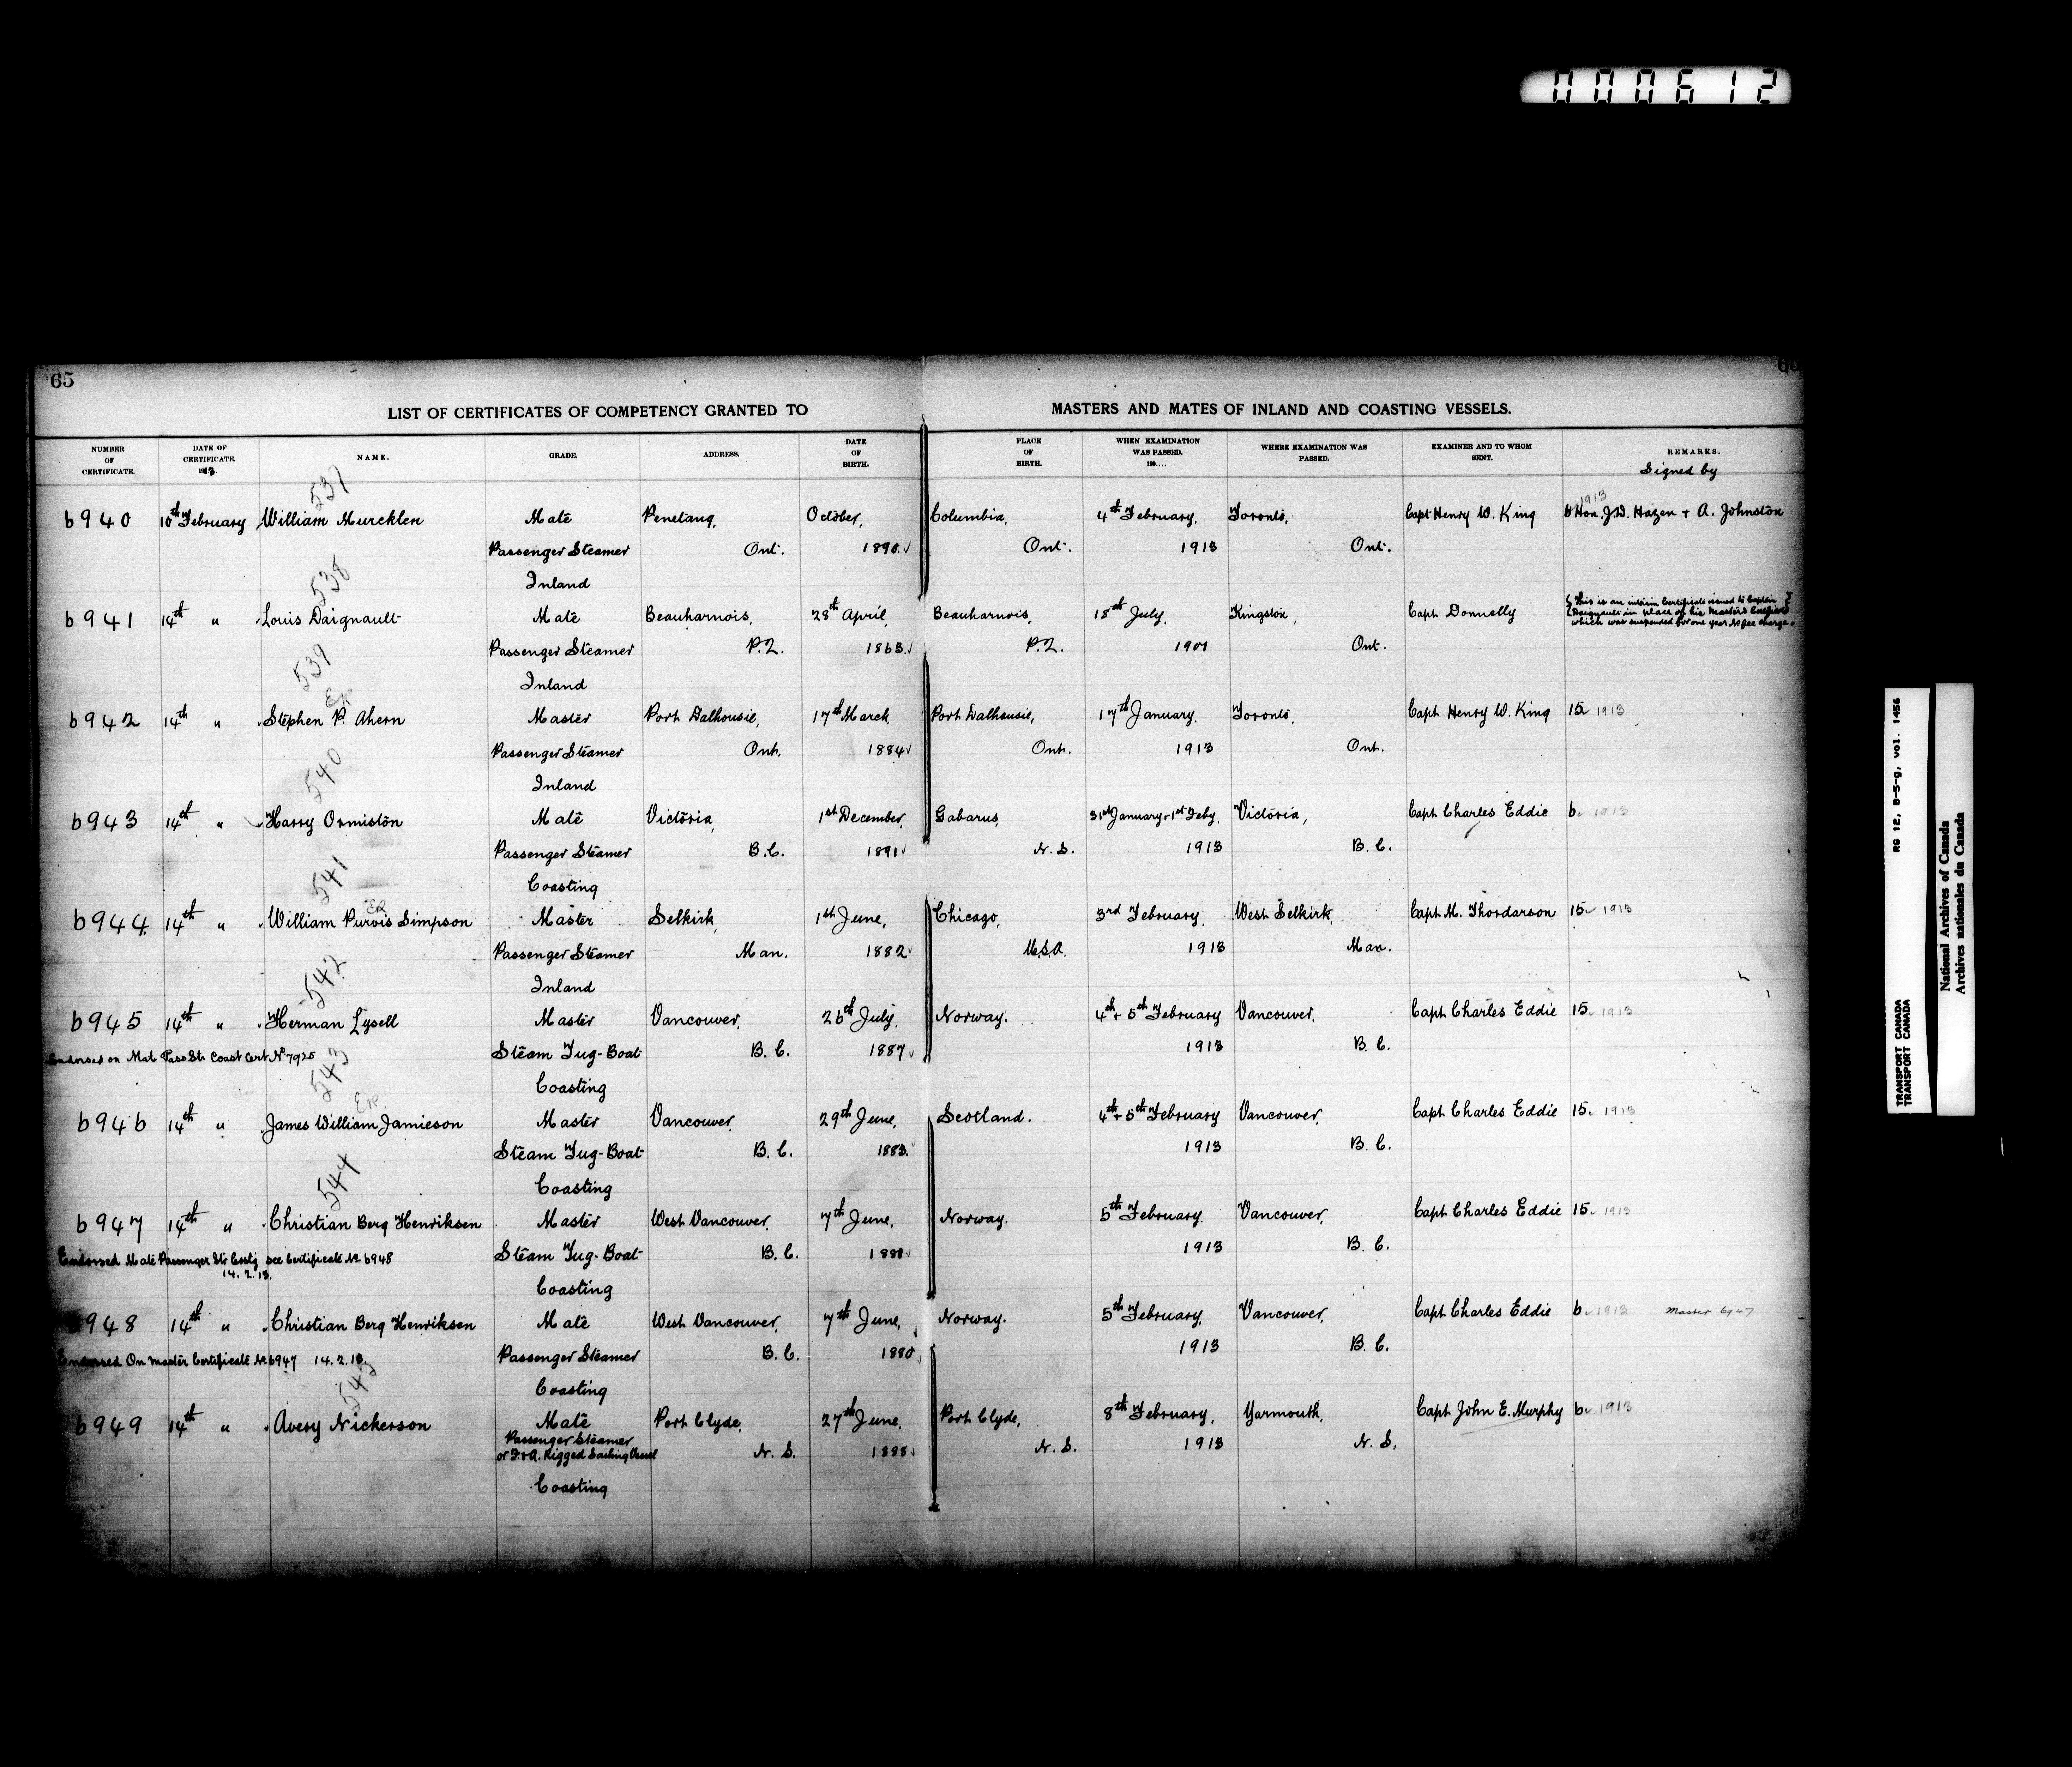 000612
65
LIST OF CERTIFICATES OF COMPETENCY GRANTED TO MASTERS AND MATES OF INLAND AND COASTING VESSELS.
NUMBER OF CERTIFICATE. DATE OF CERTIFICATE. 1913 NAME. GRADE. ADDRESS. DATE OF BIRTH. PLACE OF BIRTH. WHEN EXAMINATION WAS PASSED. 190.... WHERE EXAMINATION WAS PASSED. EXAMINER AND TO WHOM SENT. REMARKS.
Signed by
537 1913
6940 10th February William Murcklen Mate Penetang, October, Columbia, 4th February, Toronto, Capt Henry W. King 6 Hon. J.D. Hazen + A. Johnston
Passenger Steamer Ont. 1890. Ont. 1913 Ont.
538 Inland
6941 14th " Louis Daignault Mate Beauharnois, 28th April, Beauharnois, 18th July, Kingston, Capt Donnelly { This is an interim Certificate issued to Captain }
{ Daignault in place of his Masters Certificate }
which was suspended for one year No fee charge.
539 Passenger Steamer P.Q. 1863. P.Q. Ont.
Inland
ER
6942 14th " Stephen P. Ahern Master Port Dalhousie, 17th March, Port Dalhousie, 17th January, Toronto, Capt Henry W. King 15 1913
540 Passenger Steamer Ont. 1884 Ont. 1913 Ont.
Inland
6943 14th " Harry Ormiston Mate Victoria, 1st December, Gabarus, 31st January + 1st Feby, Victoria, Capt Charles Eddie 6. 1913
541 Passenger Steamer B.C. 1891 N.S. 1913 B.C.
Coasting
ER
6944 14th " William Purvis Simpson Master Selkirk, 1st June, Chicago, 3rd February, West Selkirk, Capt M. Thordarson 15 1913
542 Passenger Steamer Man. 1882 U.S.A. 1913 Man.
Inland
6945 14th " Herman Lysell Master Vancouver, 26th July, Norway. 4th + 5th February Vancouver, Capt Charles Eddie 15. 1913
Endorsed on Mat Pass Str Coast Cert No 7925 Steam Tug-Boat B.C. 1887 1913 B.C.
543 Coasting
ER
6946 14th " James William Jamieson Master Vancouver, 29th June, Scotland. 4th + 5th February Vancouver, Capt Charles Eddie 15. 1913
Steam Tug-Boat B.C. 1883. 1913 B.C.
544 Coasting
6947 14th " Christian Berg Henriksen Master West Vancouver, 7th June, Norway. 5th February, Vancouver, Capt Charles Eddie 15. 1913
Endorsed Mate Passenger Str Cstg see Certificate No 6948 Steam Tug-Boat B.C. 1880 1913 B.C.
14.2.13. Coasting
6948 14th " Christian Berg Henriksen Mate West Vancouver, 7th June, Norway. 5th February, Vancouver, Capt Charles Eddie 6 1913 Master 6947
Endorsed On Master Certificate No 6947 14.2.13. Passenger Steamer B.C. 1880 1913 B.C.
545 Coasting
6949 14th " Avery Nickerson Mate Port Clyde, 27th June, Port Clyde, 8th February, Yarmouth, Capt John E. Murphy 6 1913
Passenger Steamer
or F.+A. Rigged Sailing Vessel N.S. 1888 N.S. 1913 N.S.
Coasting
TRANSPORT CANADA RG 12, B-5-g, vol. 1456
TRANSPORT CANADA
National Archives of Canada
Archives nationales du Canada